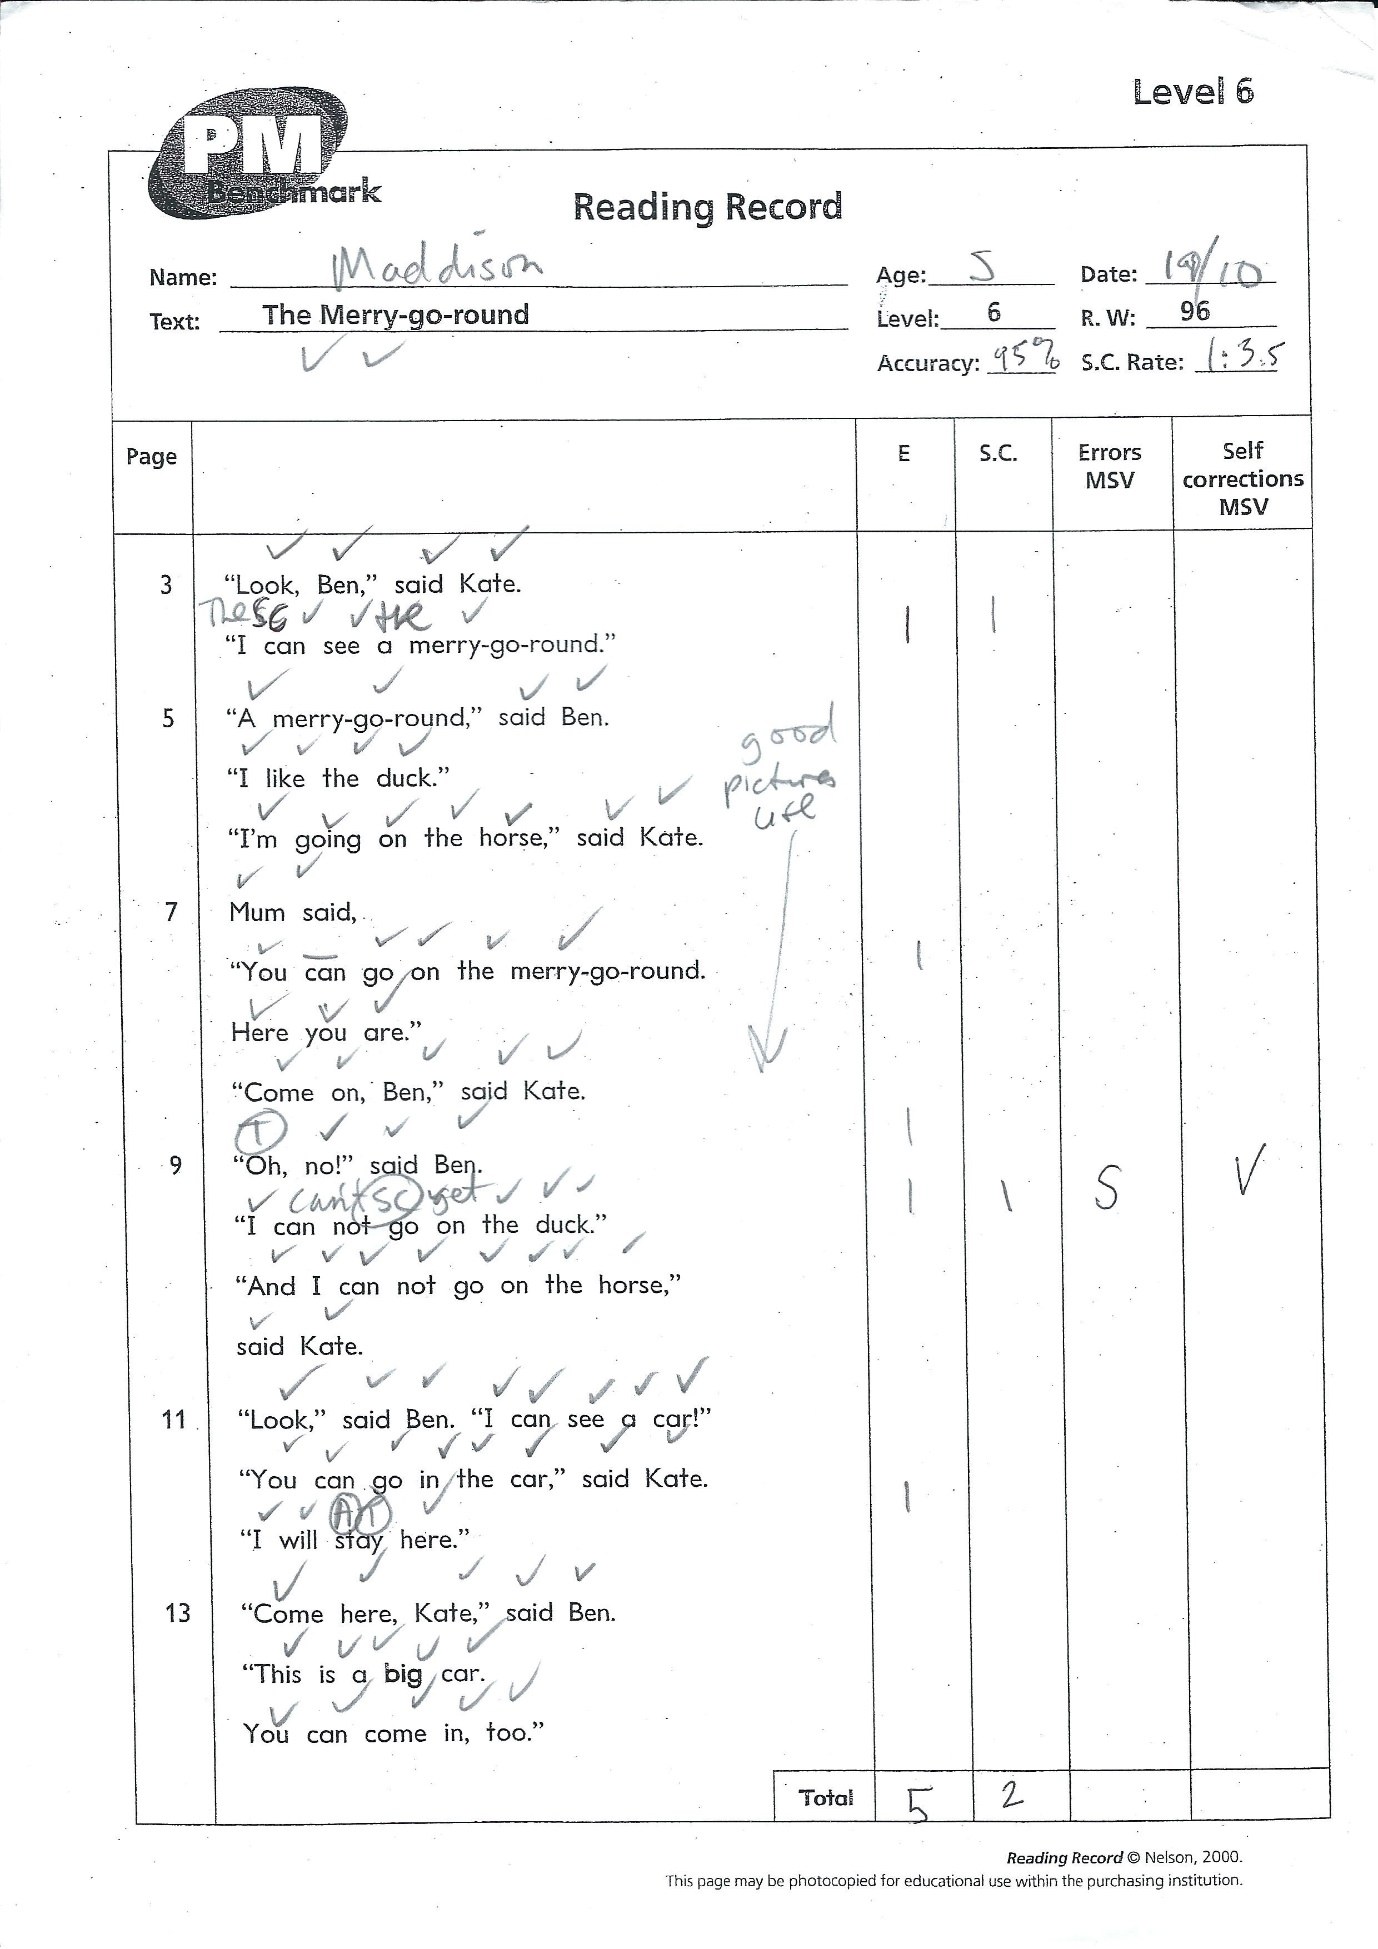 Level 6
PM
Benchmark
Reading Record
Name: Maddison Age: 5 Date: 19/10
Text: The Merry-go-round Level: 6 R. W: 96
✓ ✓ Accuracy: 95% S.C. Rate: 1:3.5
Page E S.C. Errors MSV Self corrections MSV
✓ ✓ ✓ ✓
3 “Look, Ben,” said Kate.
The SC ✓ ✓ the ✓ | |
“I can see a merry-go-round.”
✓ ✓ ✓ ✓
5 “A merry-go-round,” said Ben.
✓ ✓ ✓ ✓
“I like the duck.”
✓ ✓ ✓ ✓ ✓ ✓ ✓
“I’m going on the horse,” said Kate.
good
pictures
use
✓ ✓
7 Mum said,
✓ — ✓ ✓ ✓ ✓ |
“You can go on the merry-go-round.
✓ ✓ ✓
Here you are.”
✓ ✓ ✓ ✓ ✓
“Come on, Ben,” said Kate.
T ✓ ✓ ✓ |
9 “Oh, no!” said Ben.
✓ can't SC get ✓ ✓ ✓ | | S V
“I can not go on the duck.”
✓ ✓ ✓ ✓ ✓ ✓ ✓ ✓
“And I can not go on the horse,”
✓ ✓
said Kate.
✓ ✓ ✓ ✓ ✓ ✓ ✓ ✓
11 “Look,” said Ben. “I can see a car!”
✓ ✓ ✓ ✓ ✓ ✓ ✓ ✓
“You can go in the car,” said Kate.
✓ ✓ A T ✓ |
“I will stay here.”
✓ ✓ ✓ ✓ ✓
13 “Come here, Kate,” said Ben.
✓ ✓ ✓ ✓ ✓
“This is a big car.
✓ ✓ ✓ ✓ ✓
You can come in, too.”
Total 5 2
Reading Record © Nelson, 2000.
This page may be photocopied for educational use within the purchasing institution.